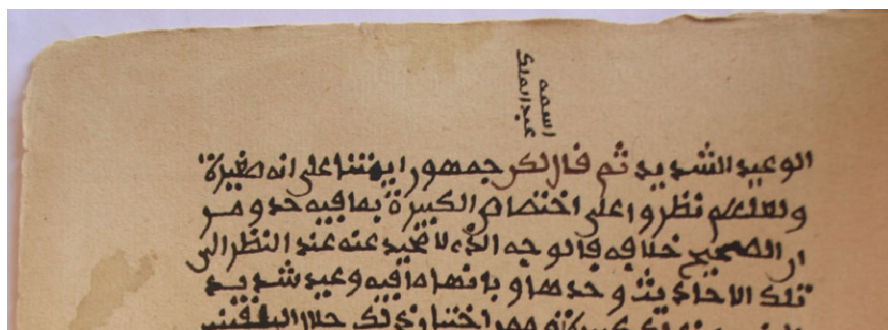 اسمه
عبد الملك
الوعيد الشديد ثم قال لكن جمهور ايمتنا على انه صغيرة
ولعلهم نظروا على اختصاص الكبيرة بما فيه حد ومر
ان الصحيح خلافه فالوجه الذي لا محيد عنه عند النظر الى
تلك الاحاديث وحدها وبانها ما فيه وعيد شديد